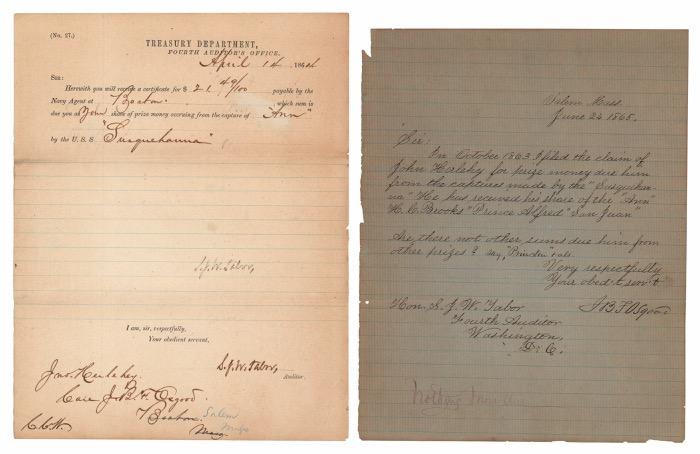 (No. 27.)
TREASURY DEPARTMENT,
FOURTH AUDITOR'S OFFICE.
April 14 1864
SIR:
Herewith you will receive a certificate for $ 21 49/100 payable by the
Navy Agent at Boston, which sum is
due you as Your share of prize money accruing from the capture of "Ann"
by the U. S. S "Susquehanna"
S.J.W. Tabor,
I am, sir, respectfully,
Your obedient servant,
S.J.W. Tabor,
Auditor.
Jno. Herlehey.
Care J.B.F. Osgood.
Boston. Salem
Mass Mass
C.C.W.
Salem Mass.
June 24 1865.
Sir:
In October 1863 I filed the claim of
John Herlehy for prize money due him
from the captures made by the "Susqueha-
na" He has received his share of the "Ann"
H.C. Brooks" Prince Alfred" San Juan"
Are there not other sums due him from
other prizes? say,
Very respectfully
Your obed't serv't
J B F Osgood
Hon. S. J. W. Tabor
Fourth Auditor
Washington,
D. C.
Nothing